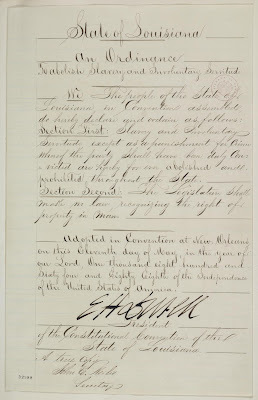 State of Louisiana
An Ordinance
To abolish Slavery and Involuntary Servitude
We The people of the State of
Louisiana in Convention assembled
do hereby declare and ordain as follows:
Section First: Slavery and Involuntary
Servitude except as a punishment for Crime
whereof the party shall have been duly Con
victed are hereby forever abolished and
prohibited throughout the State.
Section Second: The Legislature shall
make no law recognizing the right of
property in Man.
Adopted in Convention at New Orleans
on this Eleventh day of May in the year of
our Lord One thousand eight hundred and
Sixty four and Eighty Eighth of the Independence
of the United States of America.
President
of the Constitutional Convention of the
State of Louisiana
A True Copy
John E.
Secretary